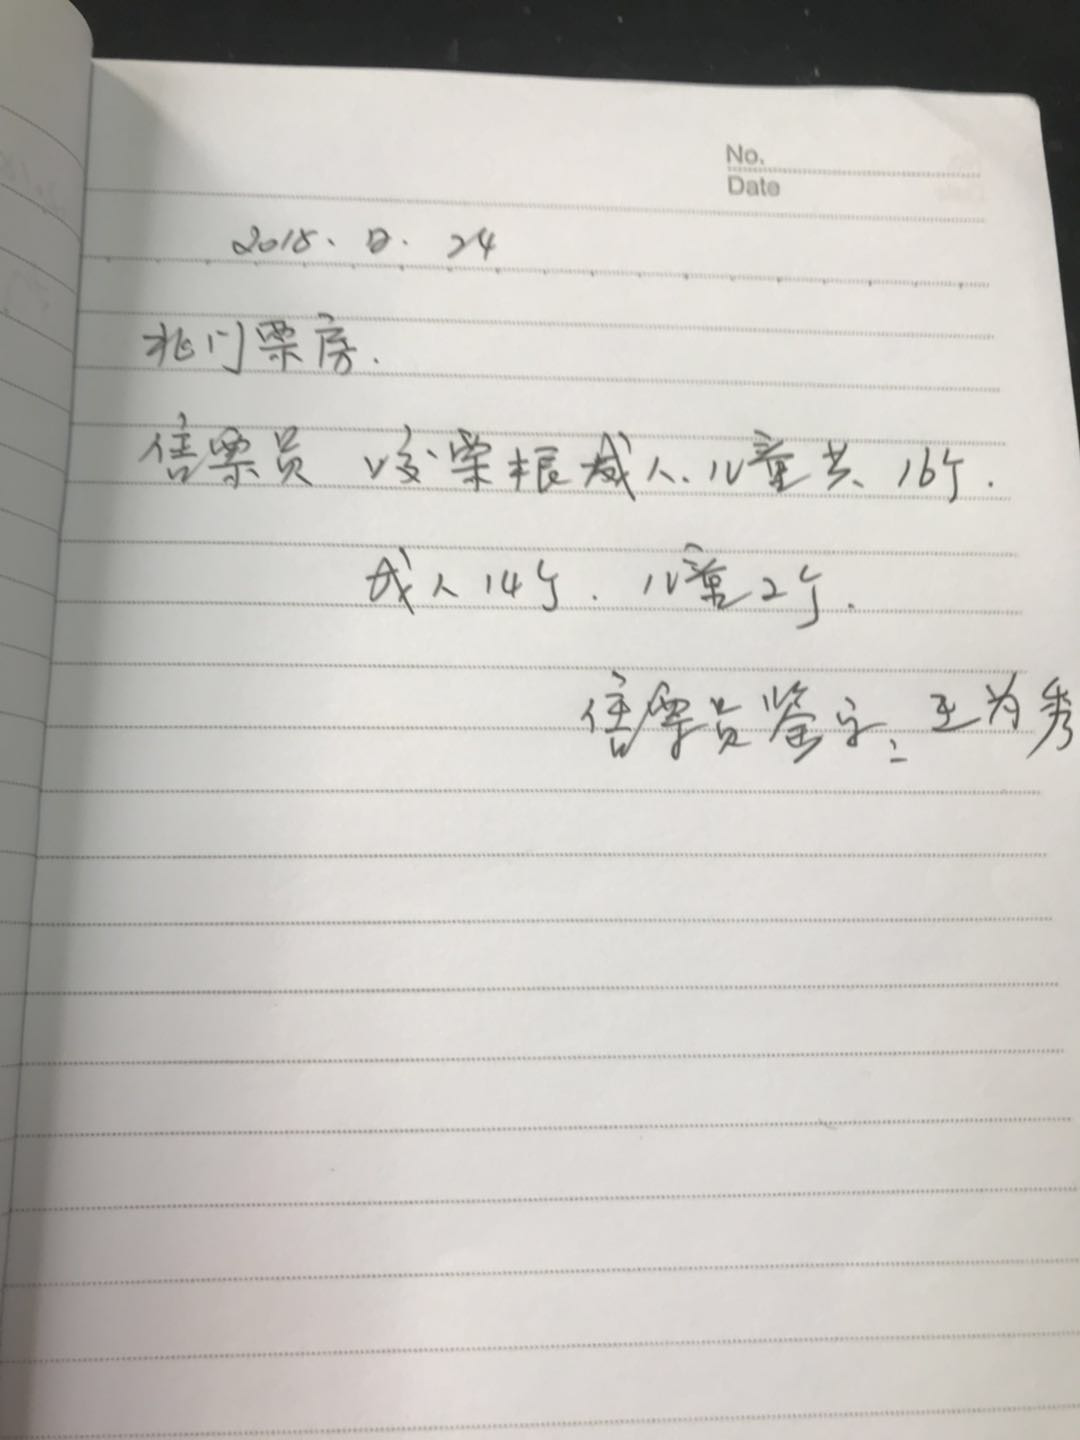 No.
Date
2018. 2. 24
北门票房.
售票员 收票根成人、儿童共16个.
成人14个. 儿童2个.
售票员鉴字: 王为秀